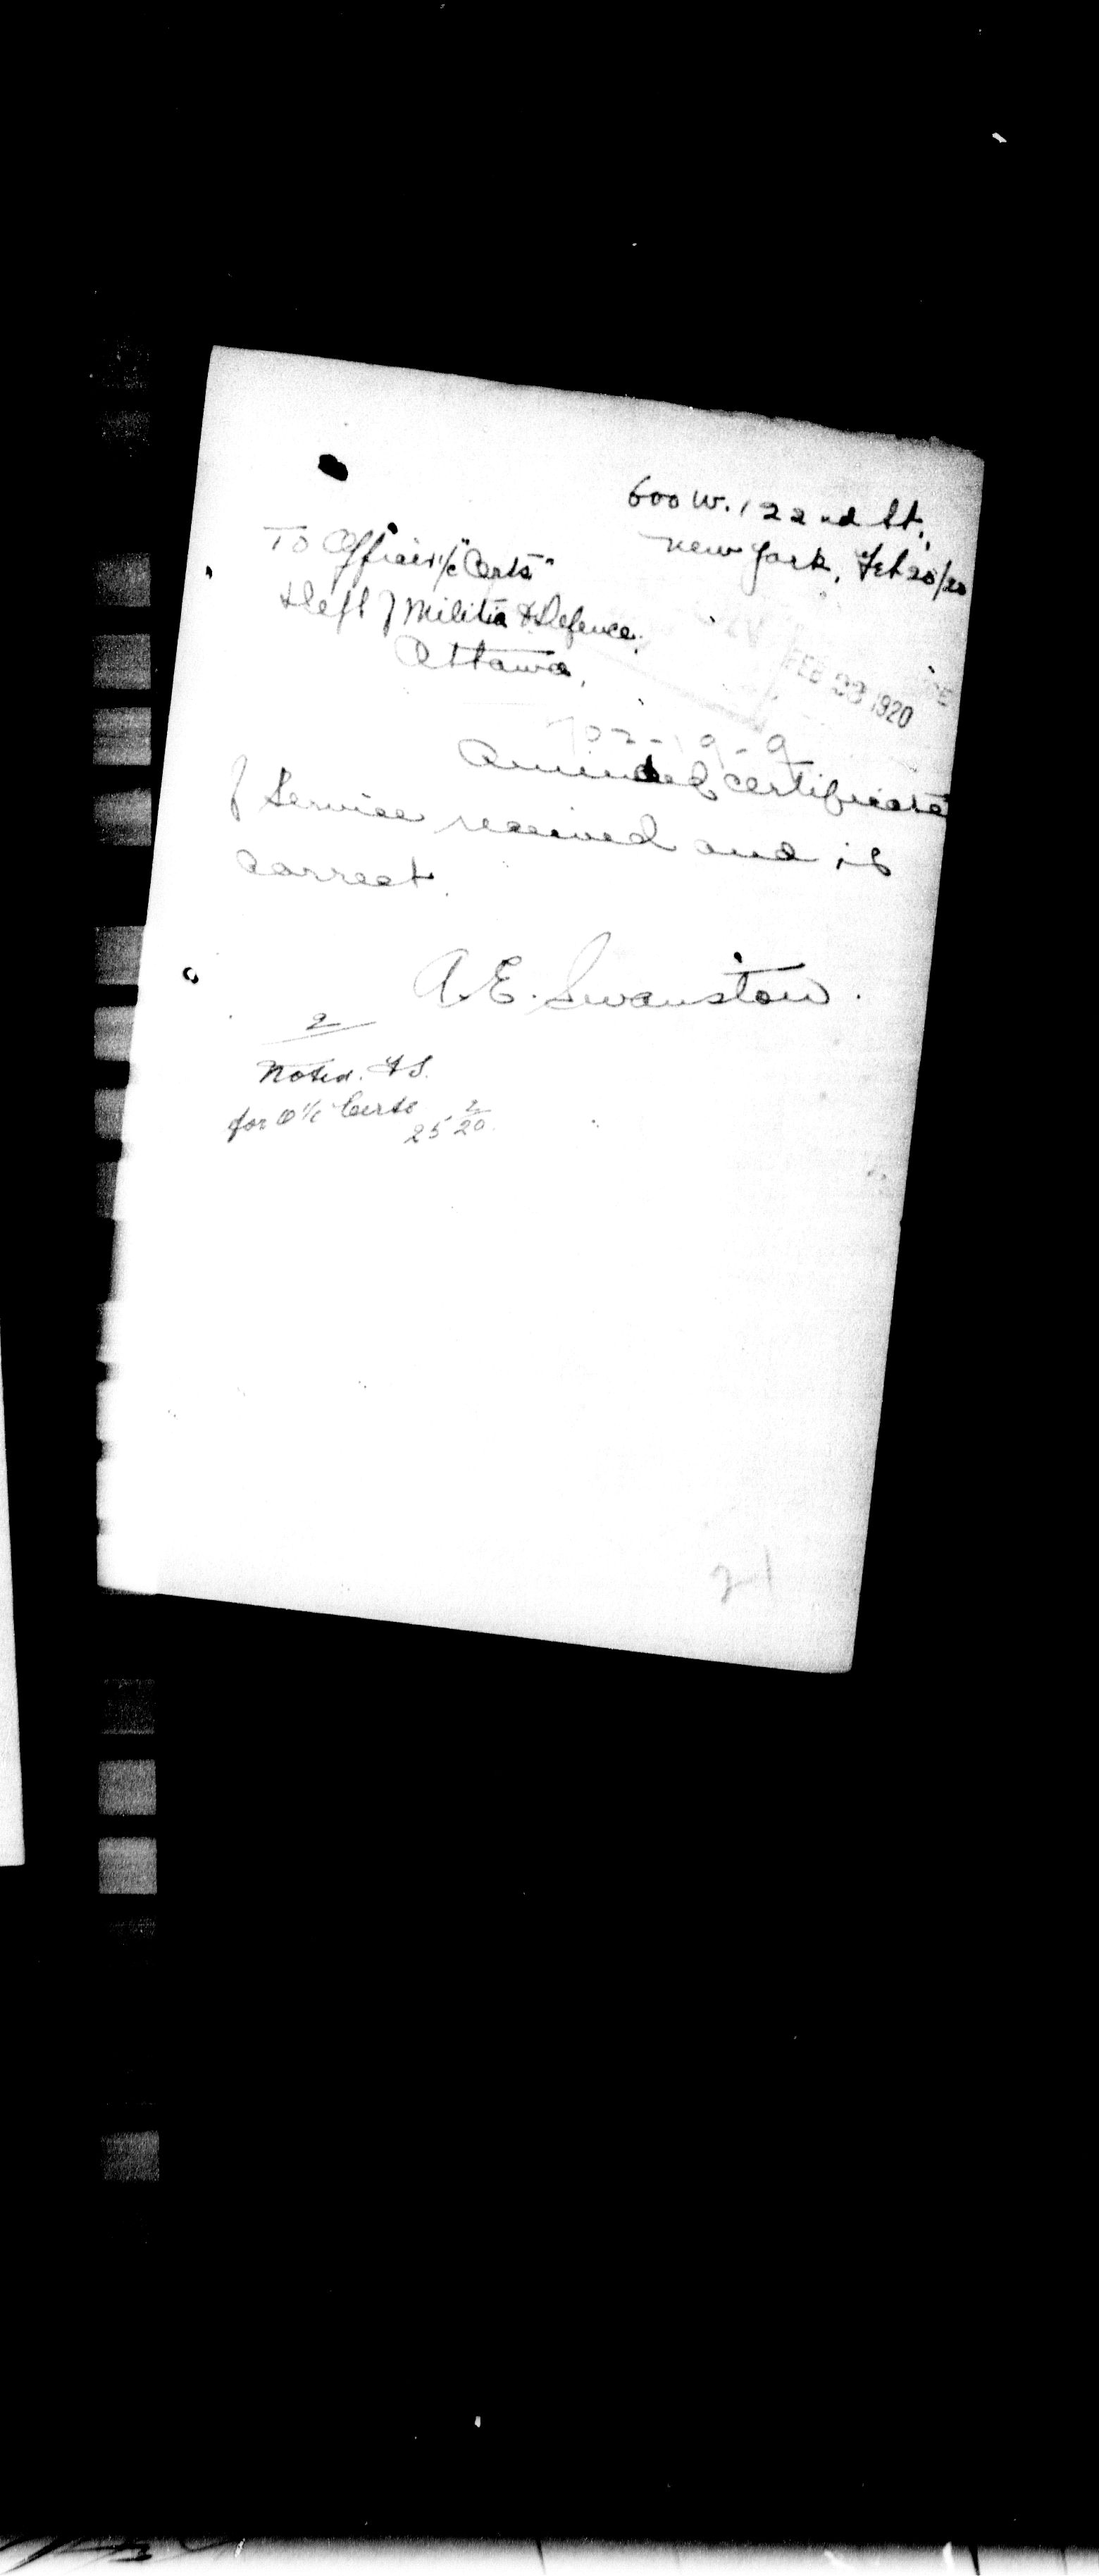 600 W. 122nd St.,
New York, Feb 20/20
To Officer i/c "Certs"
Dept of Militia & Defence,
Ottawa,
FEB 23 1920
702-19-9
Amended certificate
of Service received and is
correct.
A. E. Swanston.
2
Noted. F S.
for O i/c Certs
25 2/20.
21